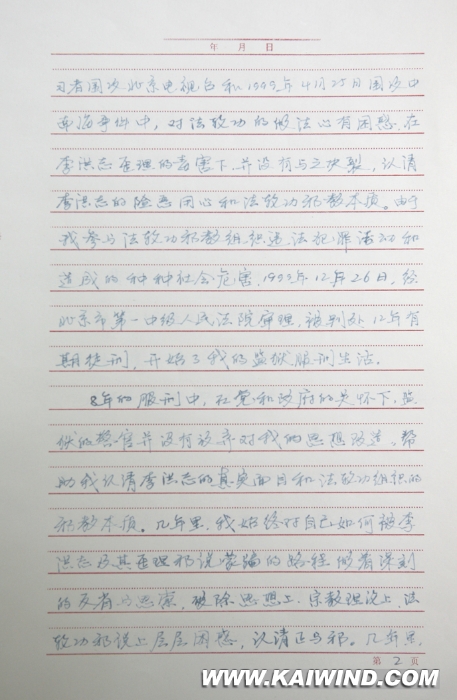 年 月 日
习者围攻北京电视台和1999年4月25日围攻中
南海事件中，对法轮功的做法心有困惑，在
李洪志歪理的毒害下，并没有与之决裂，认清
李洪志的险恶用心和法轮功邪教本质。由于
我参与法轮功邪教组织违法犯罪活动和
造成的种种社会危害，1999年12月26日，经
北京市第一中级人民法院审理，被判处12年有
期徒刑，开始了我的监狱服刑生活。
8年的服刑中，在党和政府的关怀下，监
狱的警官并没有放弃对我的思想改造，帮
助我认清李洪志的真实面目和法轮功组织的
邪教本质。几年里，我始终对自己如何被李
洪志及其歪理邪说蒙骗的路径做着深刻
的反省与思索，破除思想上、宗教理论上、法
轮功邪说上层层困惑，认清正与邪。几年里，
第 2 页
WWW.KAIWIND.COM